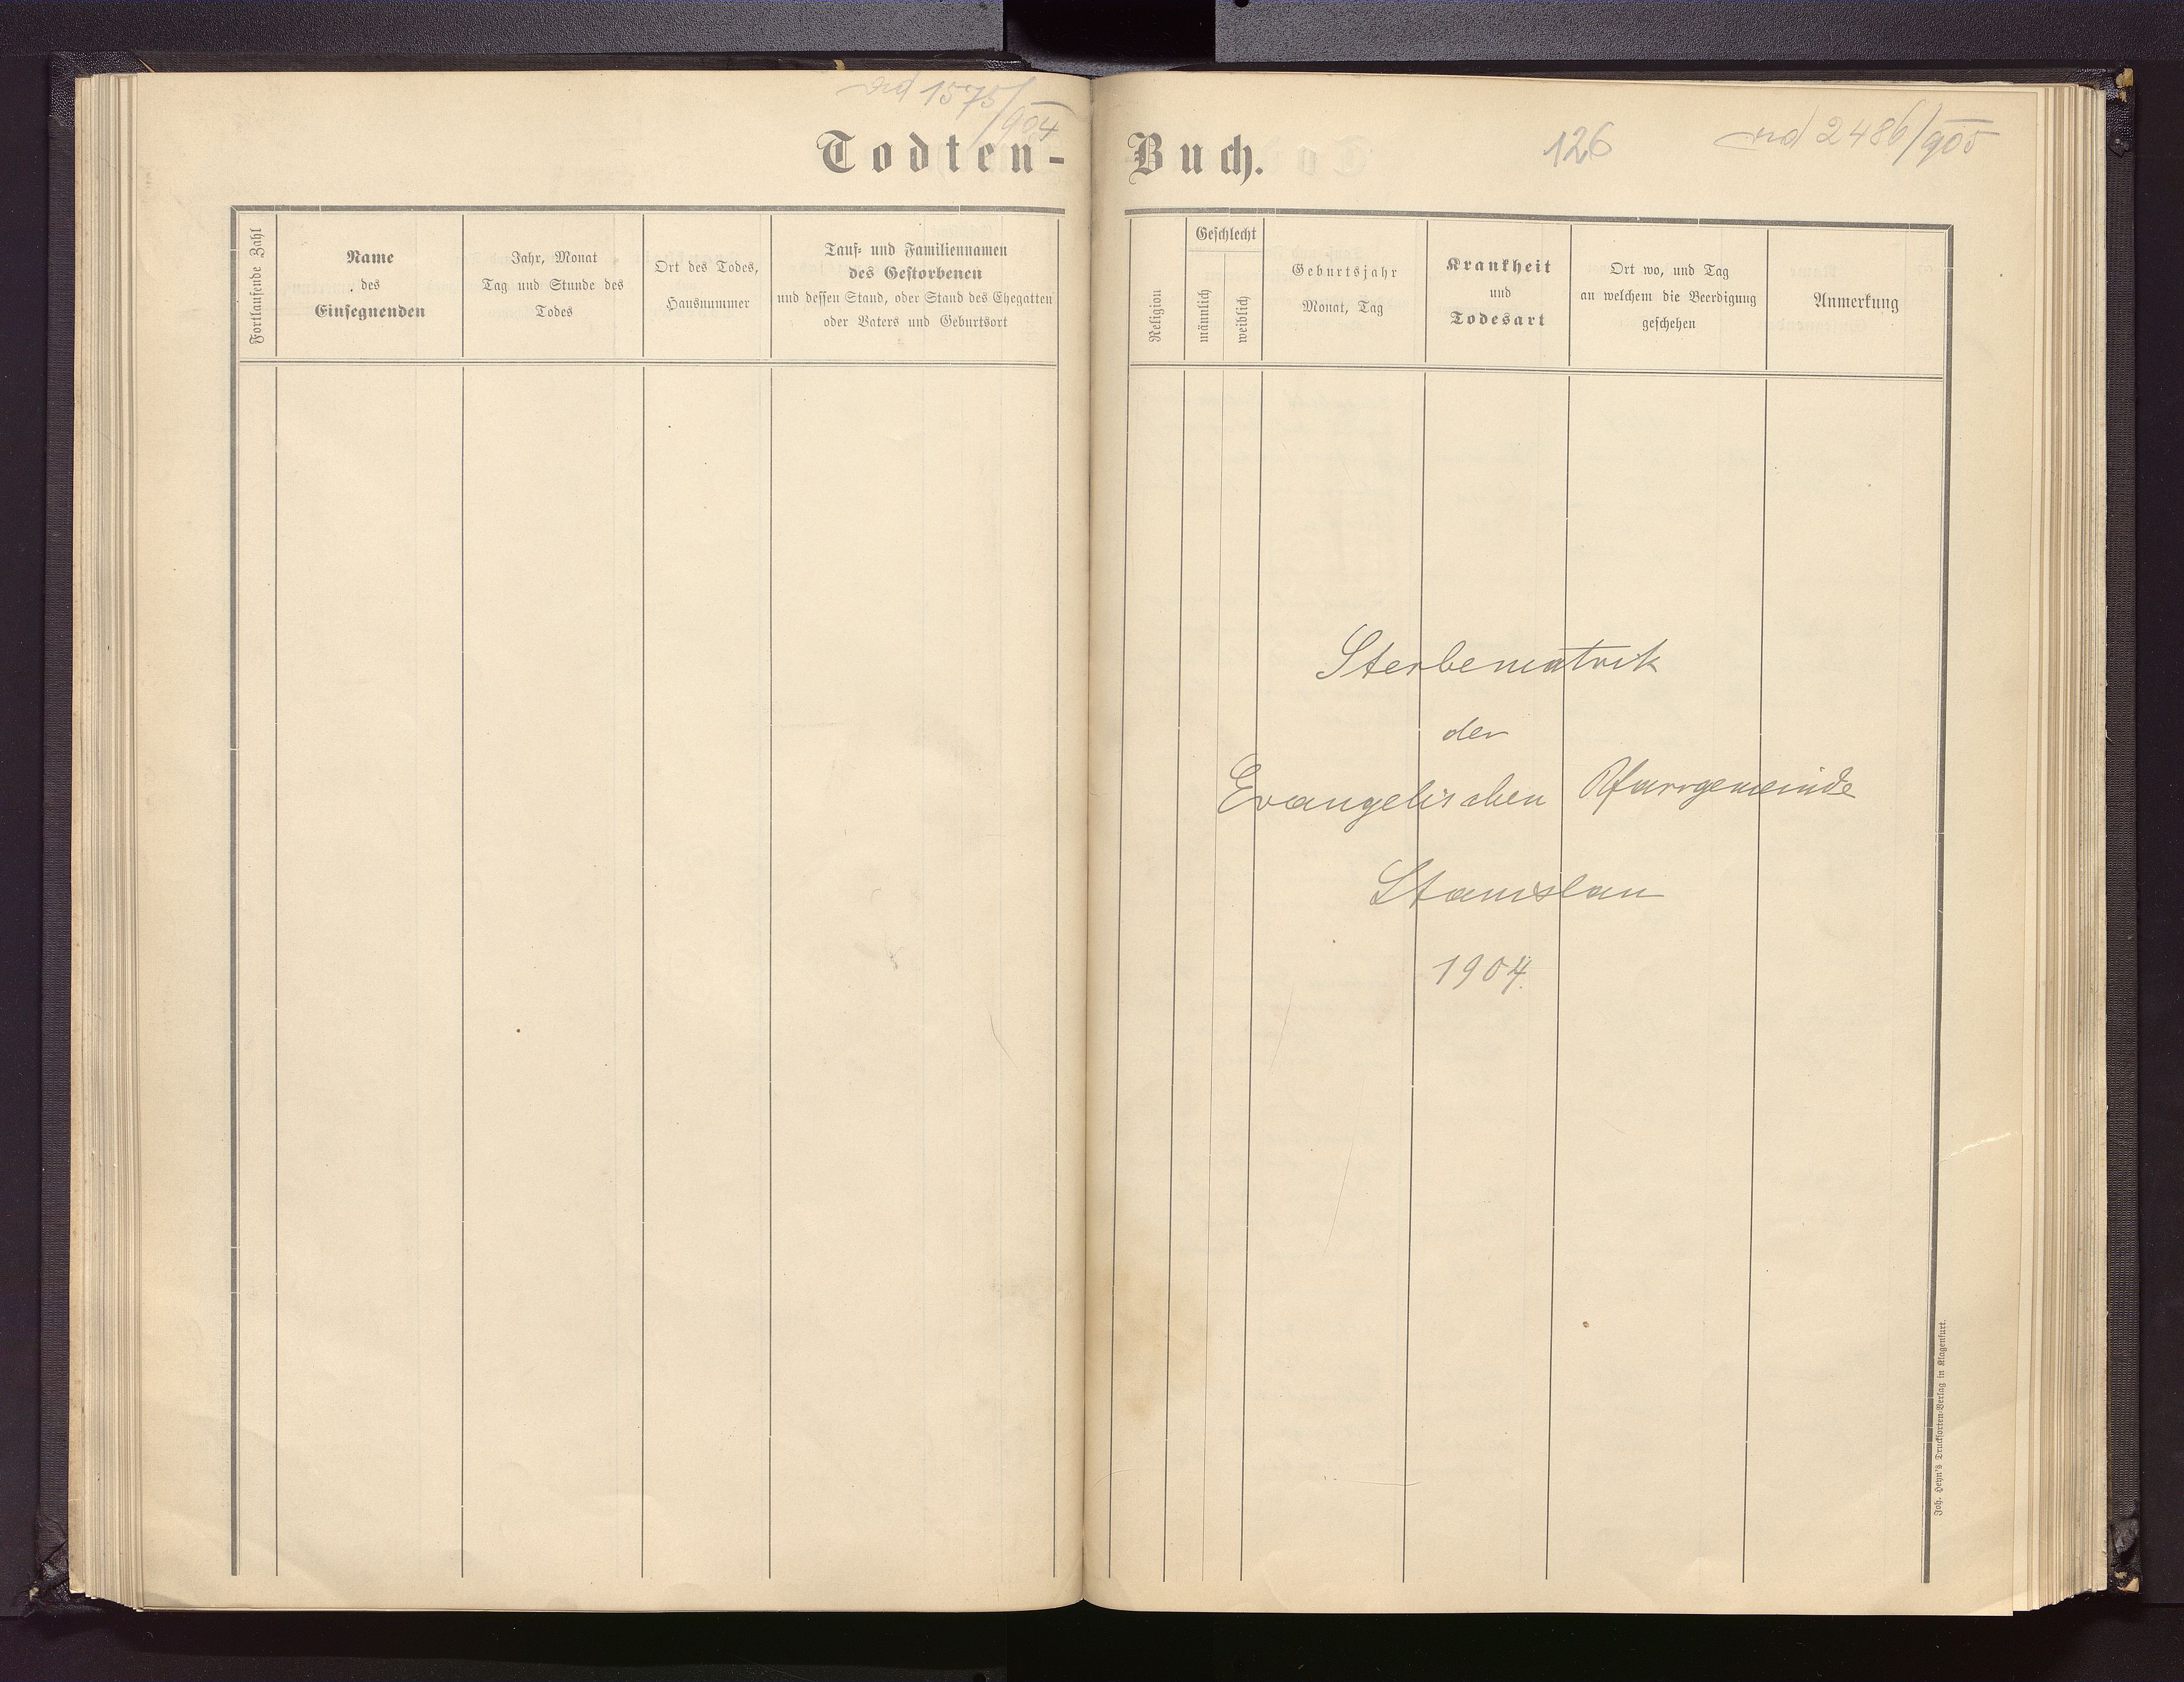 ad 1575/904
Todten-Buch.
126
ad 2486/905
Fortlaufende Zahl
Name
des
Einsegnenden
Jahr, Monat
Tag und Stunde des
Todes
Ort des Todes,
Hausnummer
Tauf- und Familiennamen
des Gestorbenen
und dessen Stand, oder Stand des Ehegatten
oder Vaters und Geburtsort
Religion
Geschlecht
männlich
weiblich
Geburtsjahr
Monat, Tag
Krankheit
und
Todesart
Ort wo, und Tag
an welchem die Beerdigung
geschehen
Anmerkung
Sterbematrik
der
Evangelischen Pfarrgemeinde
Stanislau
1904.
Joh. Heyn's Drucksorten-Verlag in Klagenfurt.